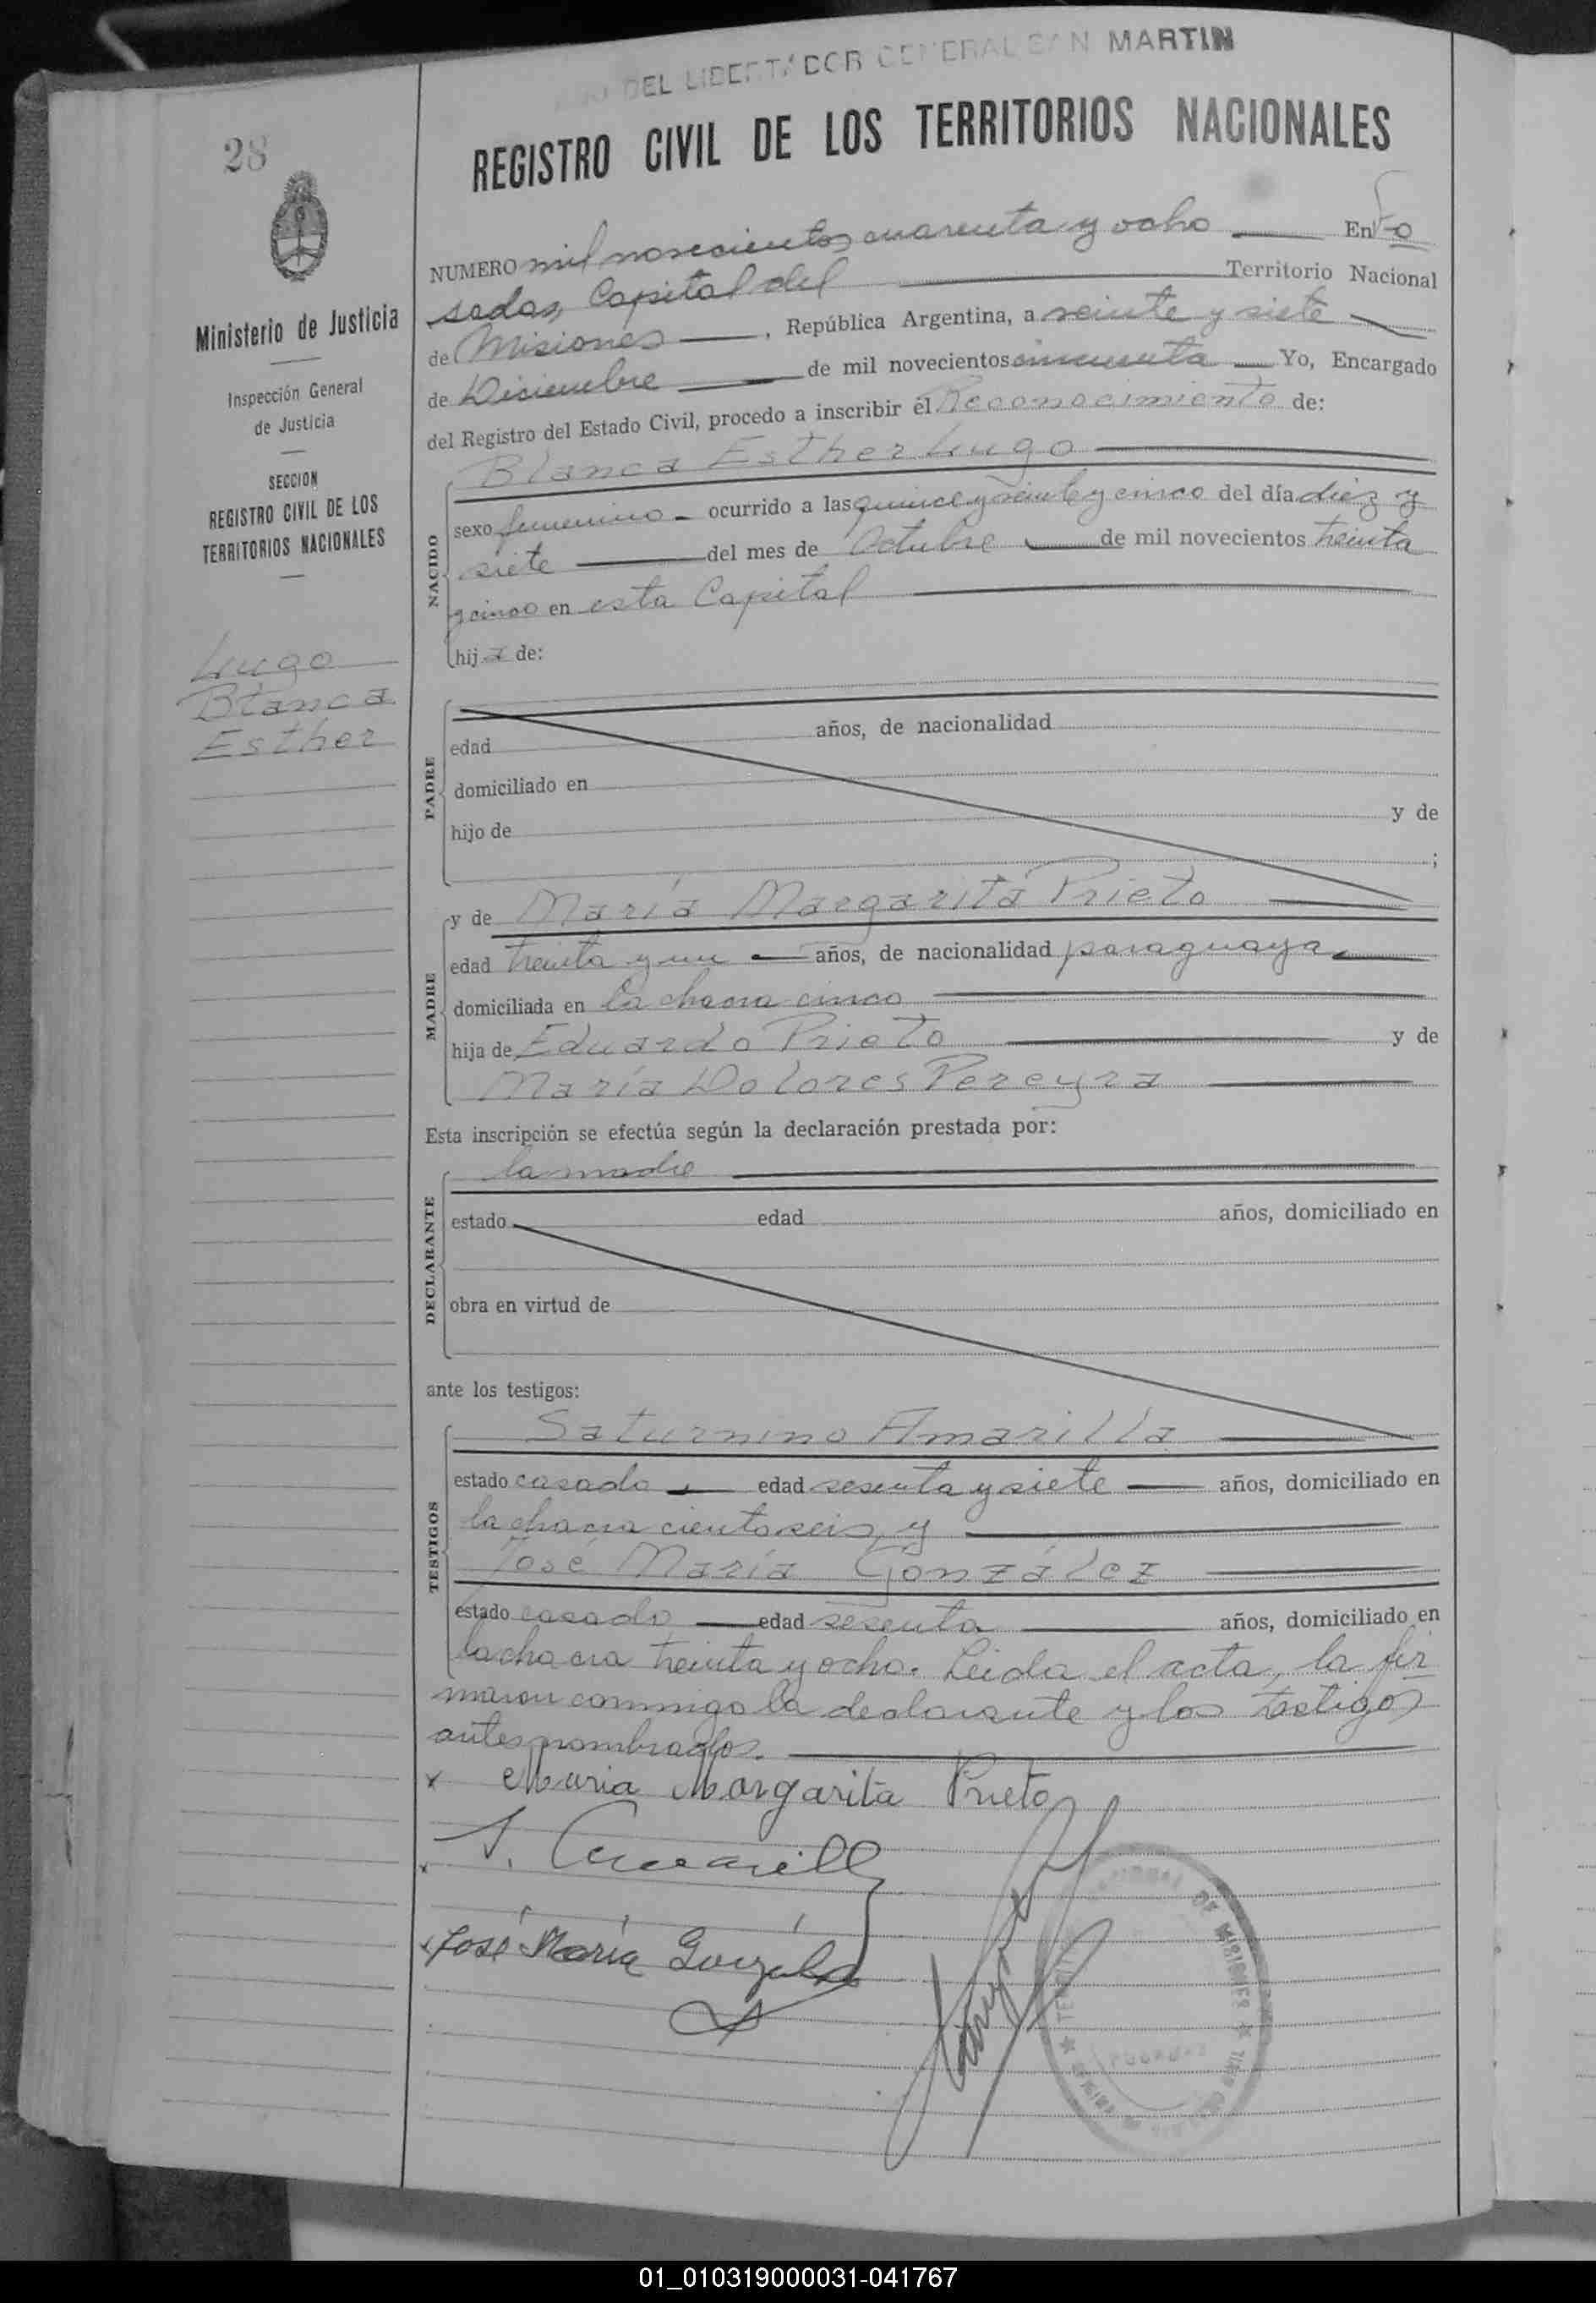 DEL LIBERTADOR GENERAL SAN MARTIN
REGISTRO CIVIL DE LOS TERRITORIOS NACIONALES
28
Ministerio de Justicia
Inspección General
de Justicia
SECCION
REGISTRO CIVIL DE LOS
TERRITORIOS NACIONALES
Lugo
Blanca
Esther
NUMERO mil novecientos cuarenta y ocho En Po
sadas, Capital del Territorio Nacional
de Misiones, República Argentina, a veinte y siete
de Diciembre de mil novecientos cincuenta Yo, Encargado
del Registro del Estado Civil, procedo a inscribir el Reconocimiento de:
Blanca Esther Lugo
NACIDO
sexo femenino ocurrido a las quince y veinte y cinco del día diez y
siete del mes de Octubre de mil novecientos treinta
y cinco en esta Capital
hija de:
PADRE
edad años, de nacionalidad
domiciliado en
hijo de y de
;
MADRE
y de María Margarita Prieto
edad treinta y un años, de nacionalidad paraguaya
domiciliada en la chacra cinco
hija de Eduardo Prieto y de
María Dolores Pereyra
Esta inscripción se efectúa según la declaración prestada por:
DECLARANTE
la madre
estado edad años, domiciliado en
obra en virtud de
ante los testigos:
TESTIGOS
Saturnino Amarilla
estado casado edad sesenta y siete años, domiciliado en
la chacra ciento seis y
José María González
estado casado edad sesenta años, domiciliado en
la chacra treinta y ocho. Leida el acta, la fir
maron conmigo la declarante y los testigos
antes nombrados.
x Maria Margarita Prieto
S. Amarilla
x José María González
DE MISIONES
POSADAS
01_010319000031-041767